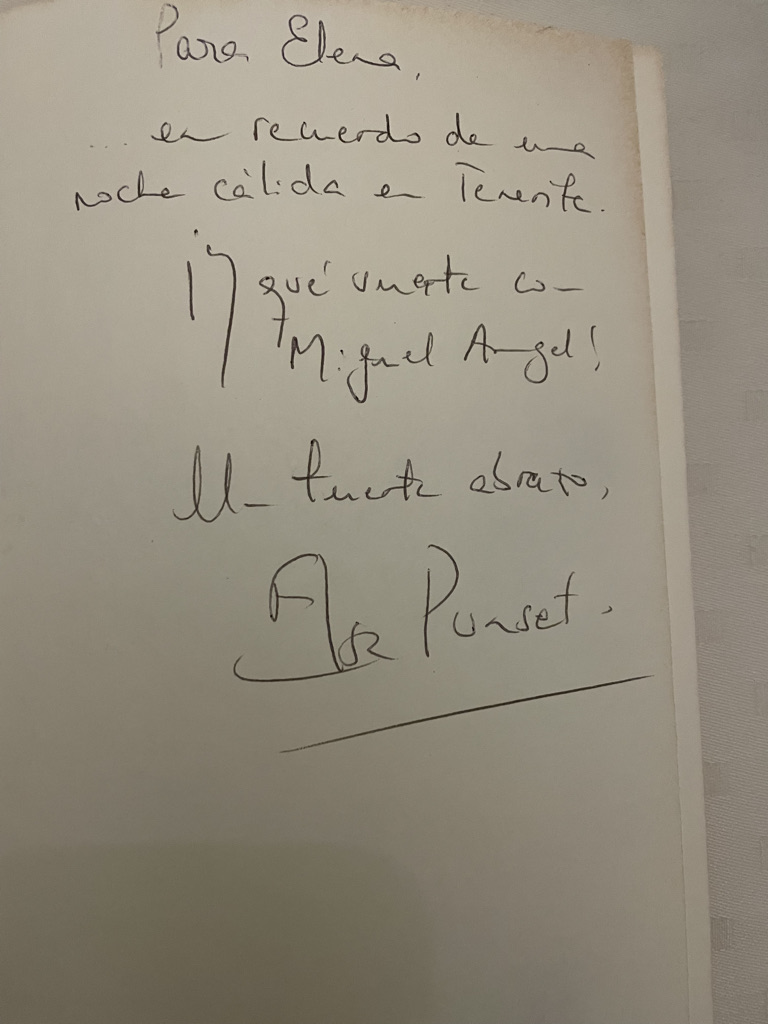 Para Elena,
... en recuerdo de una
noche cálida en Tenerife.
¡Y qué suerte con
Miguel Angel!
Un fuerte abrazo,
Elsa Punset.